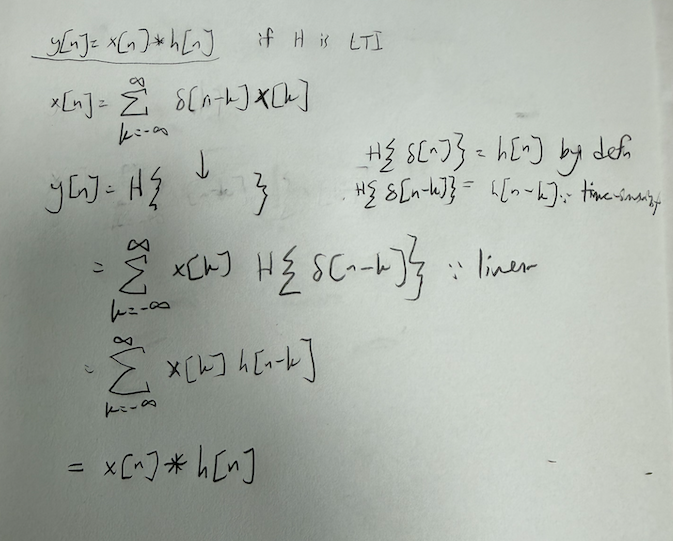 y[n]=x[n]*h[n] if H is LTI
x[n]= ∞ Σ k=-∞ δ[n-k]x[k]
H{δ[n]}=h[n] by defn
y[n]=H{ ↓ }
H{δ[n-k]}= h[n-k] ∵
= ∞ Σ k=-∞ x[k] H{δ[n-k]} ∵ linear
= ∞ Σ k=-∞ x[k] h[n-k]
= x[n]*h[n]